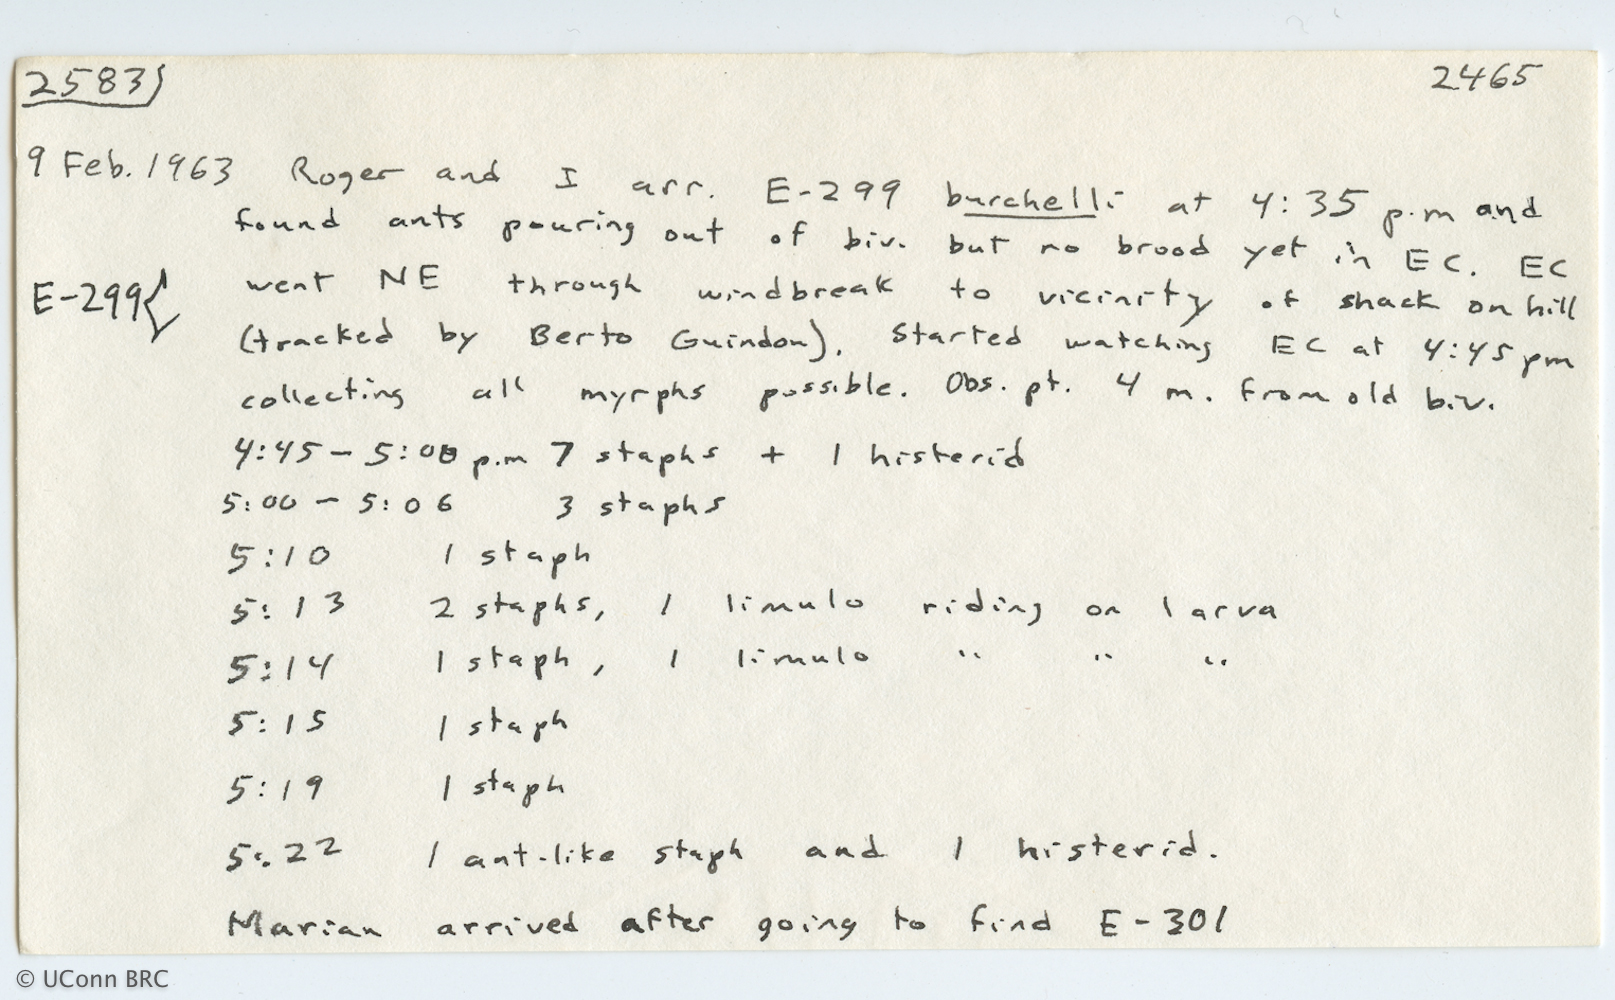 2583
2465
9 Feb. 1963 Roger and I arr. E-299 burchelli at 4:35 p.m and
found ants pouring out of biv. but no brood yet in EC. EC
went NE through windbreak to vicinity of shack on hill
E-299{
(tracked by Berto Guindon). Started watching EC at 4:45 pm
collecting all myrphs possible. Obs. pt. 4 m. from old biv.
4:45 - 5:00 p.m 7 staphs + 1 histerid
5:00 - 5:06 3 staphs
5:10 1 staph
5:13 2 staphs, 1 limulo riding on larva
5:14 1 staph, 1 limulo " " "
5:15 1 staph
5:19 1 staph
5:22 1 ant-like staph and 1 histerid.
Marian arrived after going to find E-301
© UConn BRC